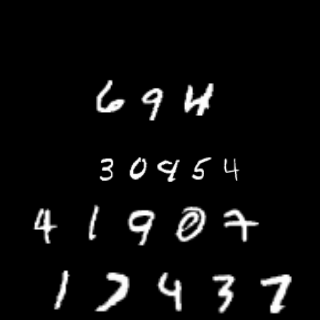 694
30954
41907
17437